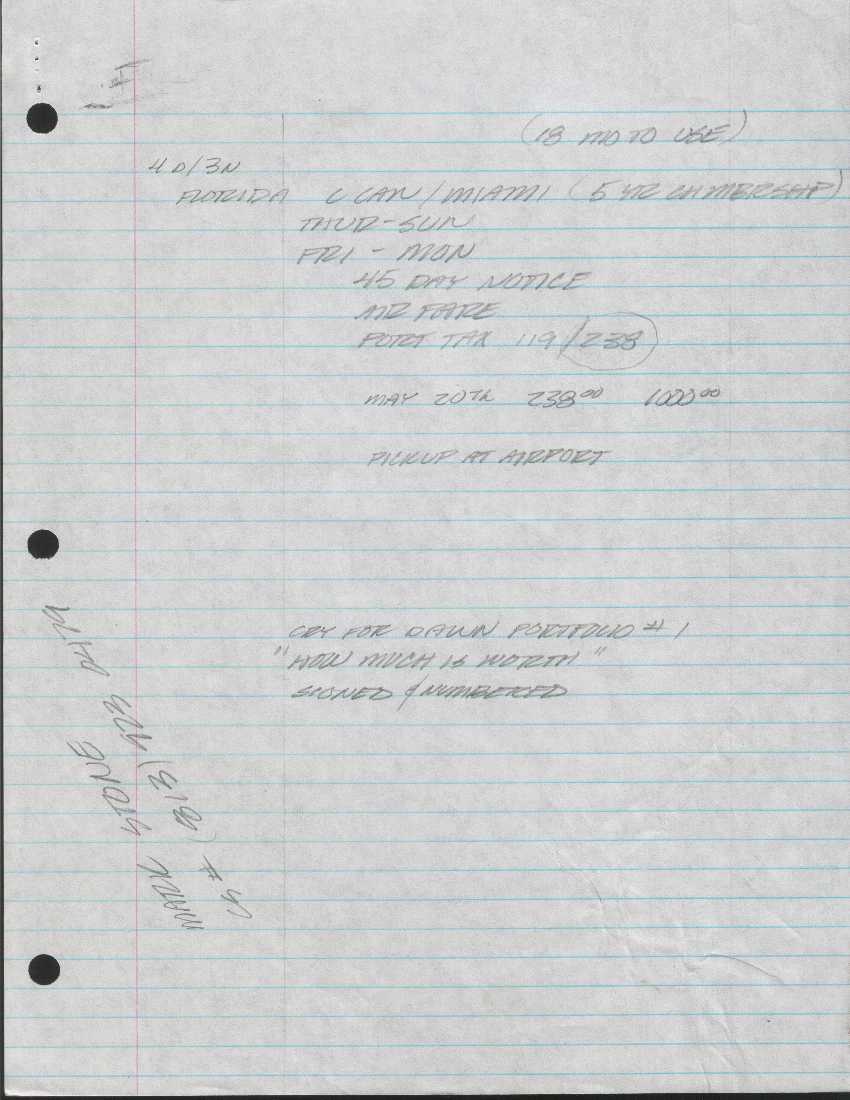 (18 MO TO USE)
4 D/3N
FLORIDA C CAN/MIAMI (5 YR CH MBERSHIP)
THUR-SUN
FRI - MON
45 DAY NOTICE
FARE
PORT TAX 119/238
MAY 20TH 238⁰⁰ 1000⁰⁰
PICKUP AT AIRPORT
CRY FOR DAWN PORTFOLIO # 1
"HOW MUCH IS WORTH"
SIGNED & NUMBERED
MARK
# (813)